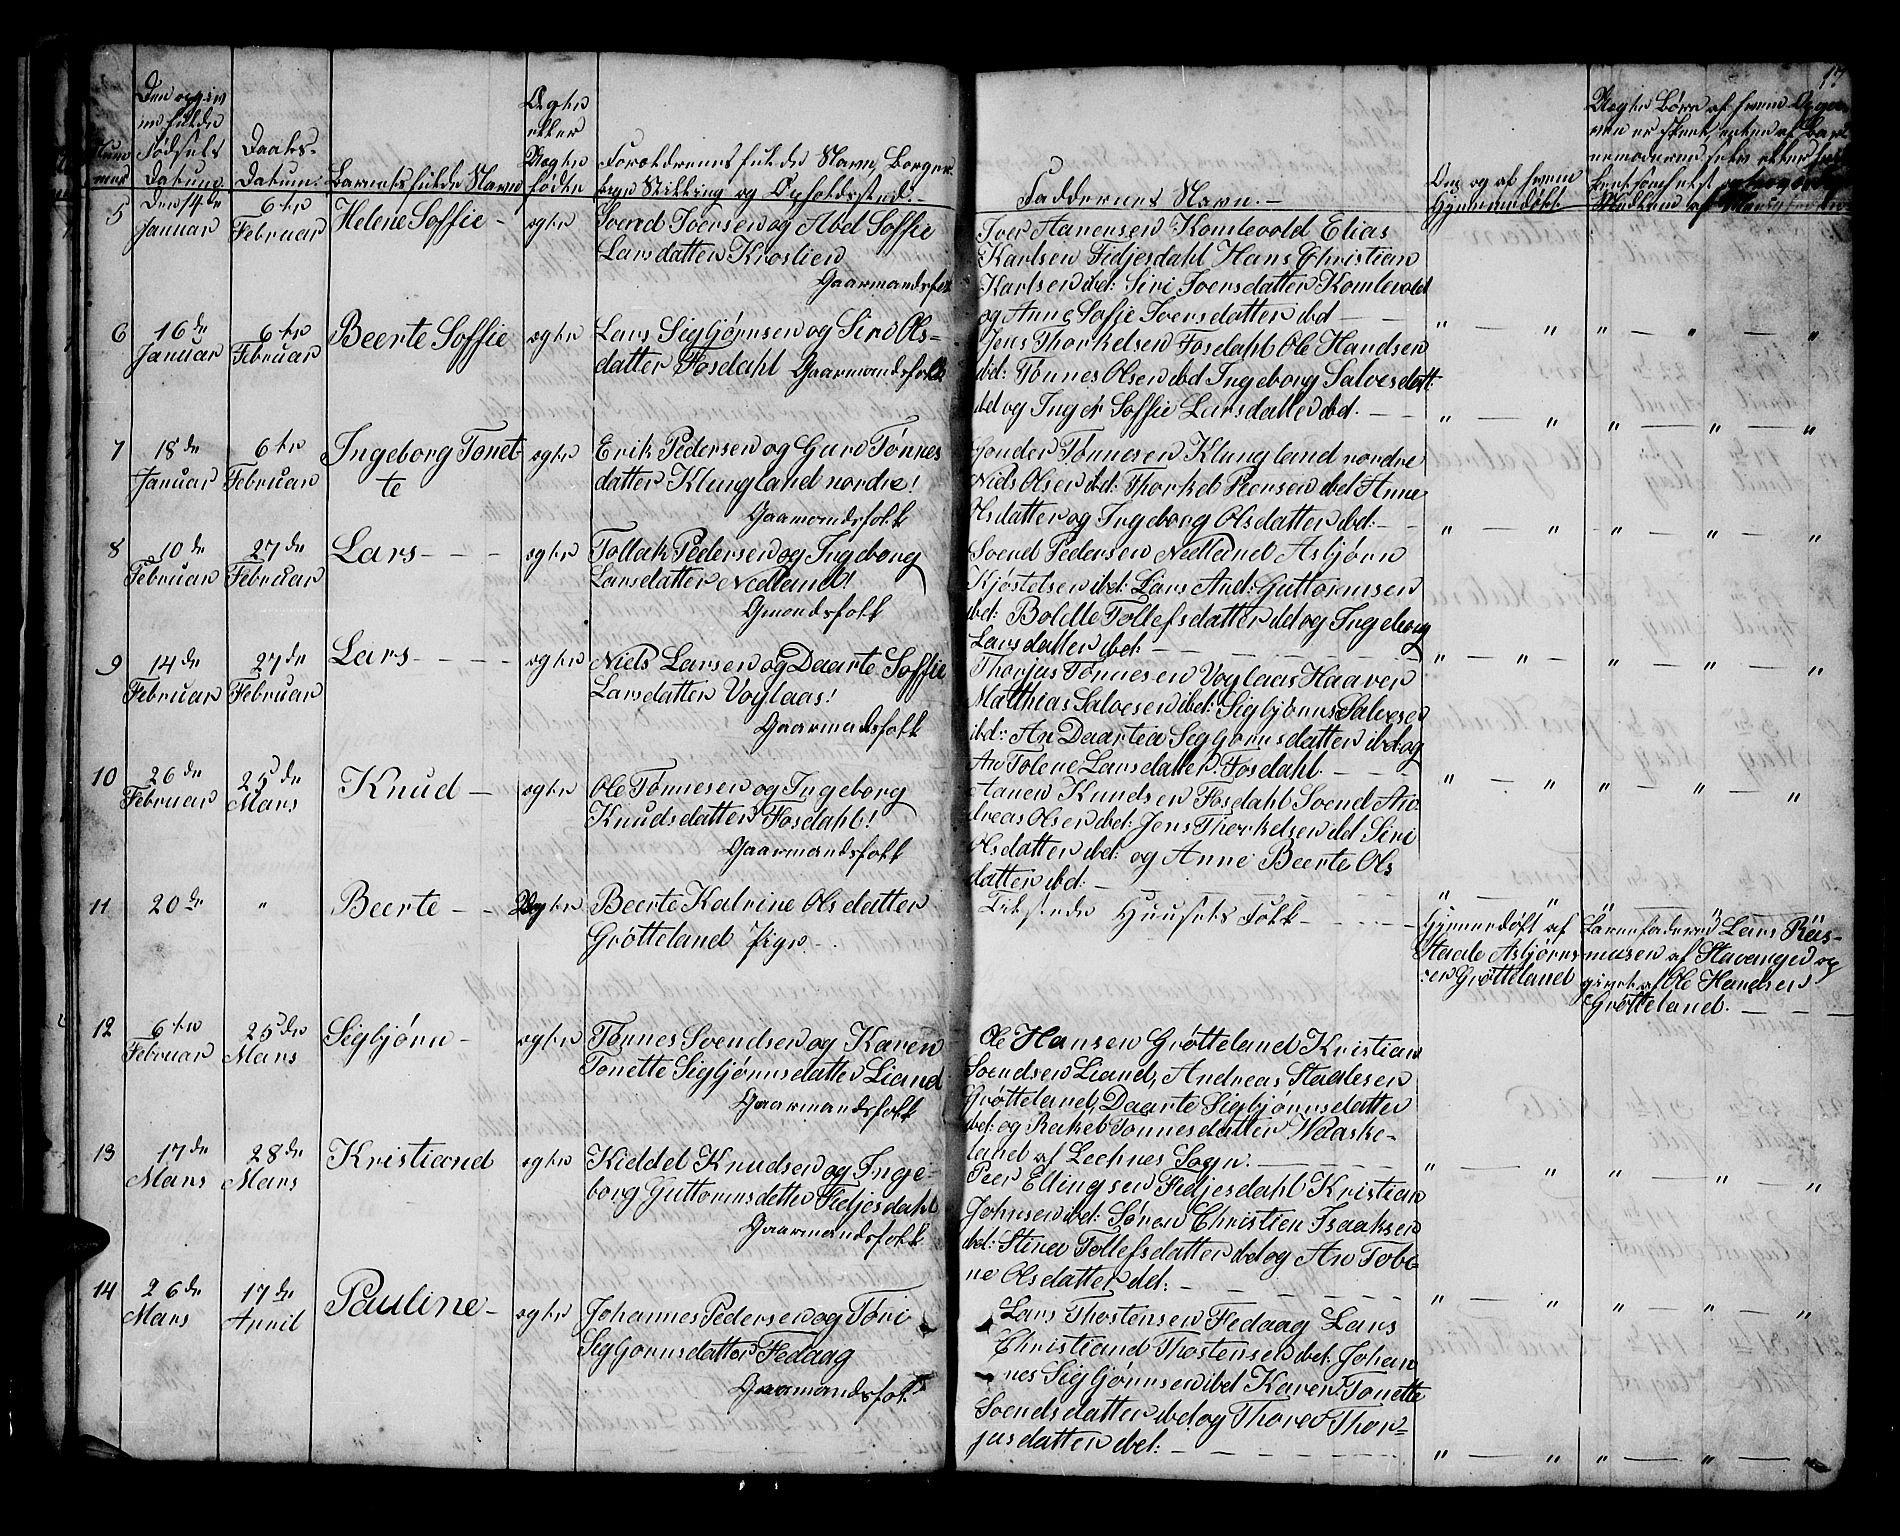 17
Den opgiv
ne fulde
Fødsels
Datum.
Daabs-
Datum.
Num
mer
Barnets fulde Navn
Ægte
eller
Uegte
fødte
Forældrenes fulde Navn Borger
lige Stilling og Opholdssted.-
Faddernes Navn.-
Om og af hvem
Hjemmedøbt
Uegte Børn af hvem Opgiv
sen er skeet, enten af Bar
nemoderen selv eller
5
Den 14de
Januar
6te
Februar
Helene Soffie -
egte
Svend Iversen og Abel Soffie
Larsdatter Kroslien
Gaarmandsfol
Iver Aanensen Komlevold Elias
Karlsen Fidjesdahl Hans Christian
Karlsen ibd: Siri Iversdatter Komlevold
og Anne Sofie Iversdatter ibd - -
" — " " — " — "
6
16de
Januar
6te
Februar
Beerte Soffie
egte
Lars Sigbjørnsen og Siri Ols-
datter Fosdahl Gaarmandsfolk
Jens Thorkelsen Fosdahl Ole Handsen
ibd: Tønnes Olsen ibd Ingeborg Salvesdatt:
ibd og Inger Soffie Larsdatter ibd. - -
" — " " — " — "
7
18de
Januar
6te
Februar
Ingeborg Tonet-
te
egte
Erik Pedersen og Guro Tønnes
datter Klungland nordre!
Gaarmandsfolk
Gunder Tønnesen Klungland nordre
Niels Olsen ibd: Thorkel Peersen ibd Anne
Olsdatter og Ingeborg Olsdatter ibd: - -
" — " " — " — "
8
10de
Februar
27de
Februar
Lars - - -
egte
Tollak Pedersen og Ingeborg
Larsdatter Nedland!
Gmandsfolk
Svend Pedersen Nedland Asbjørn
Kjøstelsen ibd: Lars And: Guttormsen
ibd: Bolette Tollefsdatter ibd og Ingeborg
Larsdatter ibd: - - -
" — " — " — " — "
9
14de
Februar
27de
Februar
Lars - - - -
egte
Niels Larsen og Daarte Soffie
Larsdatter Voglaas!
Gaarmandsfolk
Thorjus Tønnesen Voglaas Haaver
Matthias Salvesen ibd: Sigbjørn Salvesen
ibd: An Daartea Sigbjørnsdatter ibd og
An Tolene Larsdatter Fosdahl. - - -
" — " " — " — "
10
26de
Februar
25de
Mars
Knud -
egte
Ole Tønnesen og Ingeborg
Knudsdatter Fosdahl!
Gaarmandsfolk
Aanen Knudsen Fosdahl Svend An
dreas Olsen ibd: Jens Thorkelsen ibd Siri
Olsdatter ibd: og Anne Beerte Ols
datter ibd: -
" " " "
11
20de
"
Beerte - -
Uegte
Beerte Katrine Olsdatter
Grøtteland Pige -
Tilstede Huusets Folk - - - -
Hjemmedøbt af
Staale Asbjørns
sen Grøtteland
Barnefaderen Lars Ras-
musen af Stavanger op
givet af Ole Handsen
Grøtteland. - - -
12
6te
Februar
25de
Mars
Sigbjørn -
egte
Tønnes Svendsen og Karen
Tonette Sigbjørnsdatter Liand
Gaarmandsfolk
Ole Hansen Grøtteland Kristian
Svendsen Liand, Andreas Staalesen
Grøtteland, Daarte Sigbjørnsdatter
ibd: og Rakel Tønnesdatter Waaske-
land af Lechnes Sogn. - - -
" — " " — " — "
13
17de
Mars
28de
Mars
Kristiand
egte
Kiddel Knudsen og Inge-
borg Guttormsdatter Fidjesdahl
Gaarmandsfolk
Peer Ellingsen Fidjesdahl Kristian
Johnsen ibd: Søren Christien Isaaksen
ibd: Stina Tollefsdatter ibd og An Tobi-
ne Olsdatter ibd: - - - -
" — " " — " — "
14
26de
Mars
17de
April
Pauline -
egte
Johannes Pedersen og Tøri
Sigbjørnsdatter Fedaag
Gaarmandsfolk
Lars Thostensen Fedaag Lars
Christiand Thostensen ibd: Johan
nes Sigbjørnsen ibd Karen Tonette
Svendsdatter ibd og Thore Thor=
jusdatter ibd: - - - -
" — " " — " —